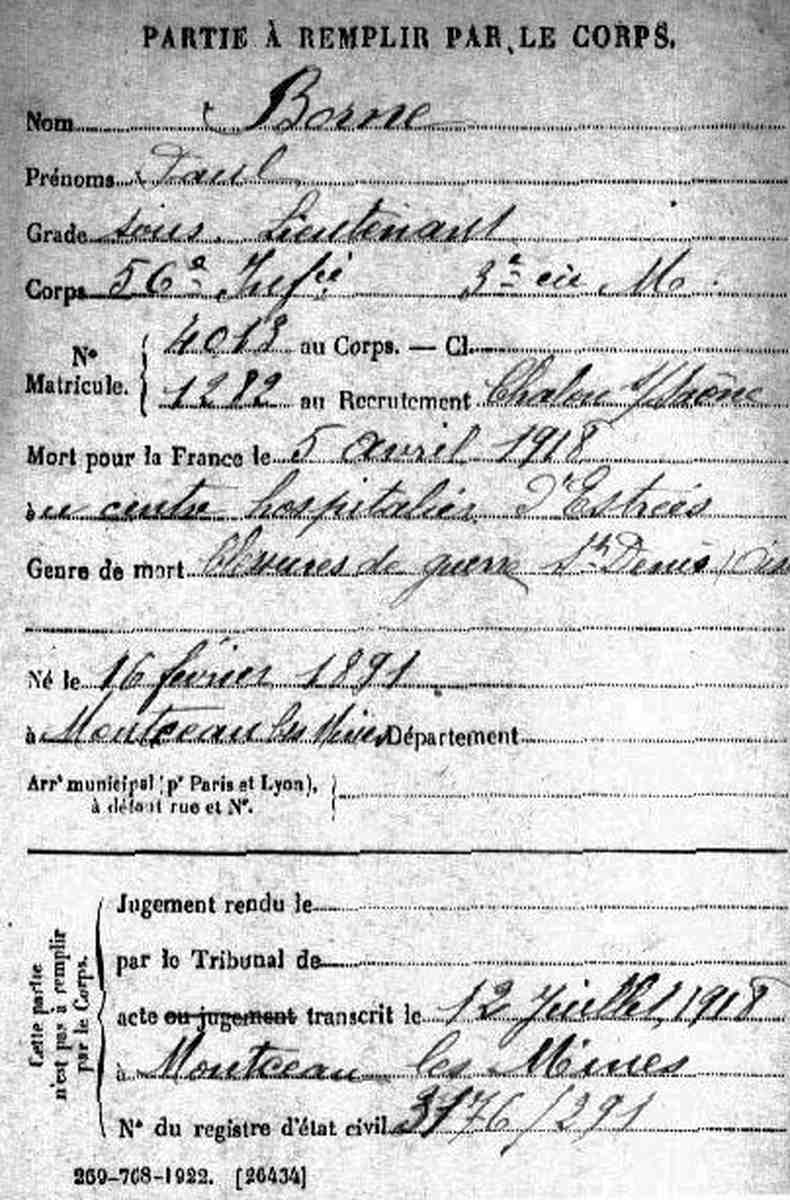 PARTIE À REMPLIR PAR LE CORPS.
Nom Borne
Prénoms Paul
Grade sous. Lieutenant
Corps 56e Infie 3e cie M.
N° Matricule. 4013 au Corps. — Cl.
1282 au Recrutement Chalon s/Saône
Mort pour la France le 5 avril 1918
au centre hospitalier d'Estrées
Genre de mort blessures de guerre St Denis
Né le 16 février 1891
à Montceau les Mines Département
Arrt municipal (pr Paris et Lyon),
à défaut rue et N°.
Cette partie n'est pas à remplir par le Corps.
Jugement rendu le
par le Tribunal de
acte ou jugement transcrit le 12 Juillet 1918
à Montceau les Mines
N° du registre d'état civil 3176/291
269-768-1922. [26434]